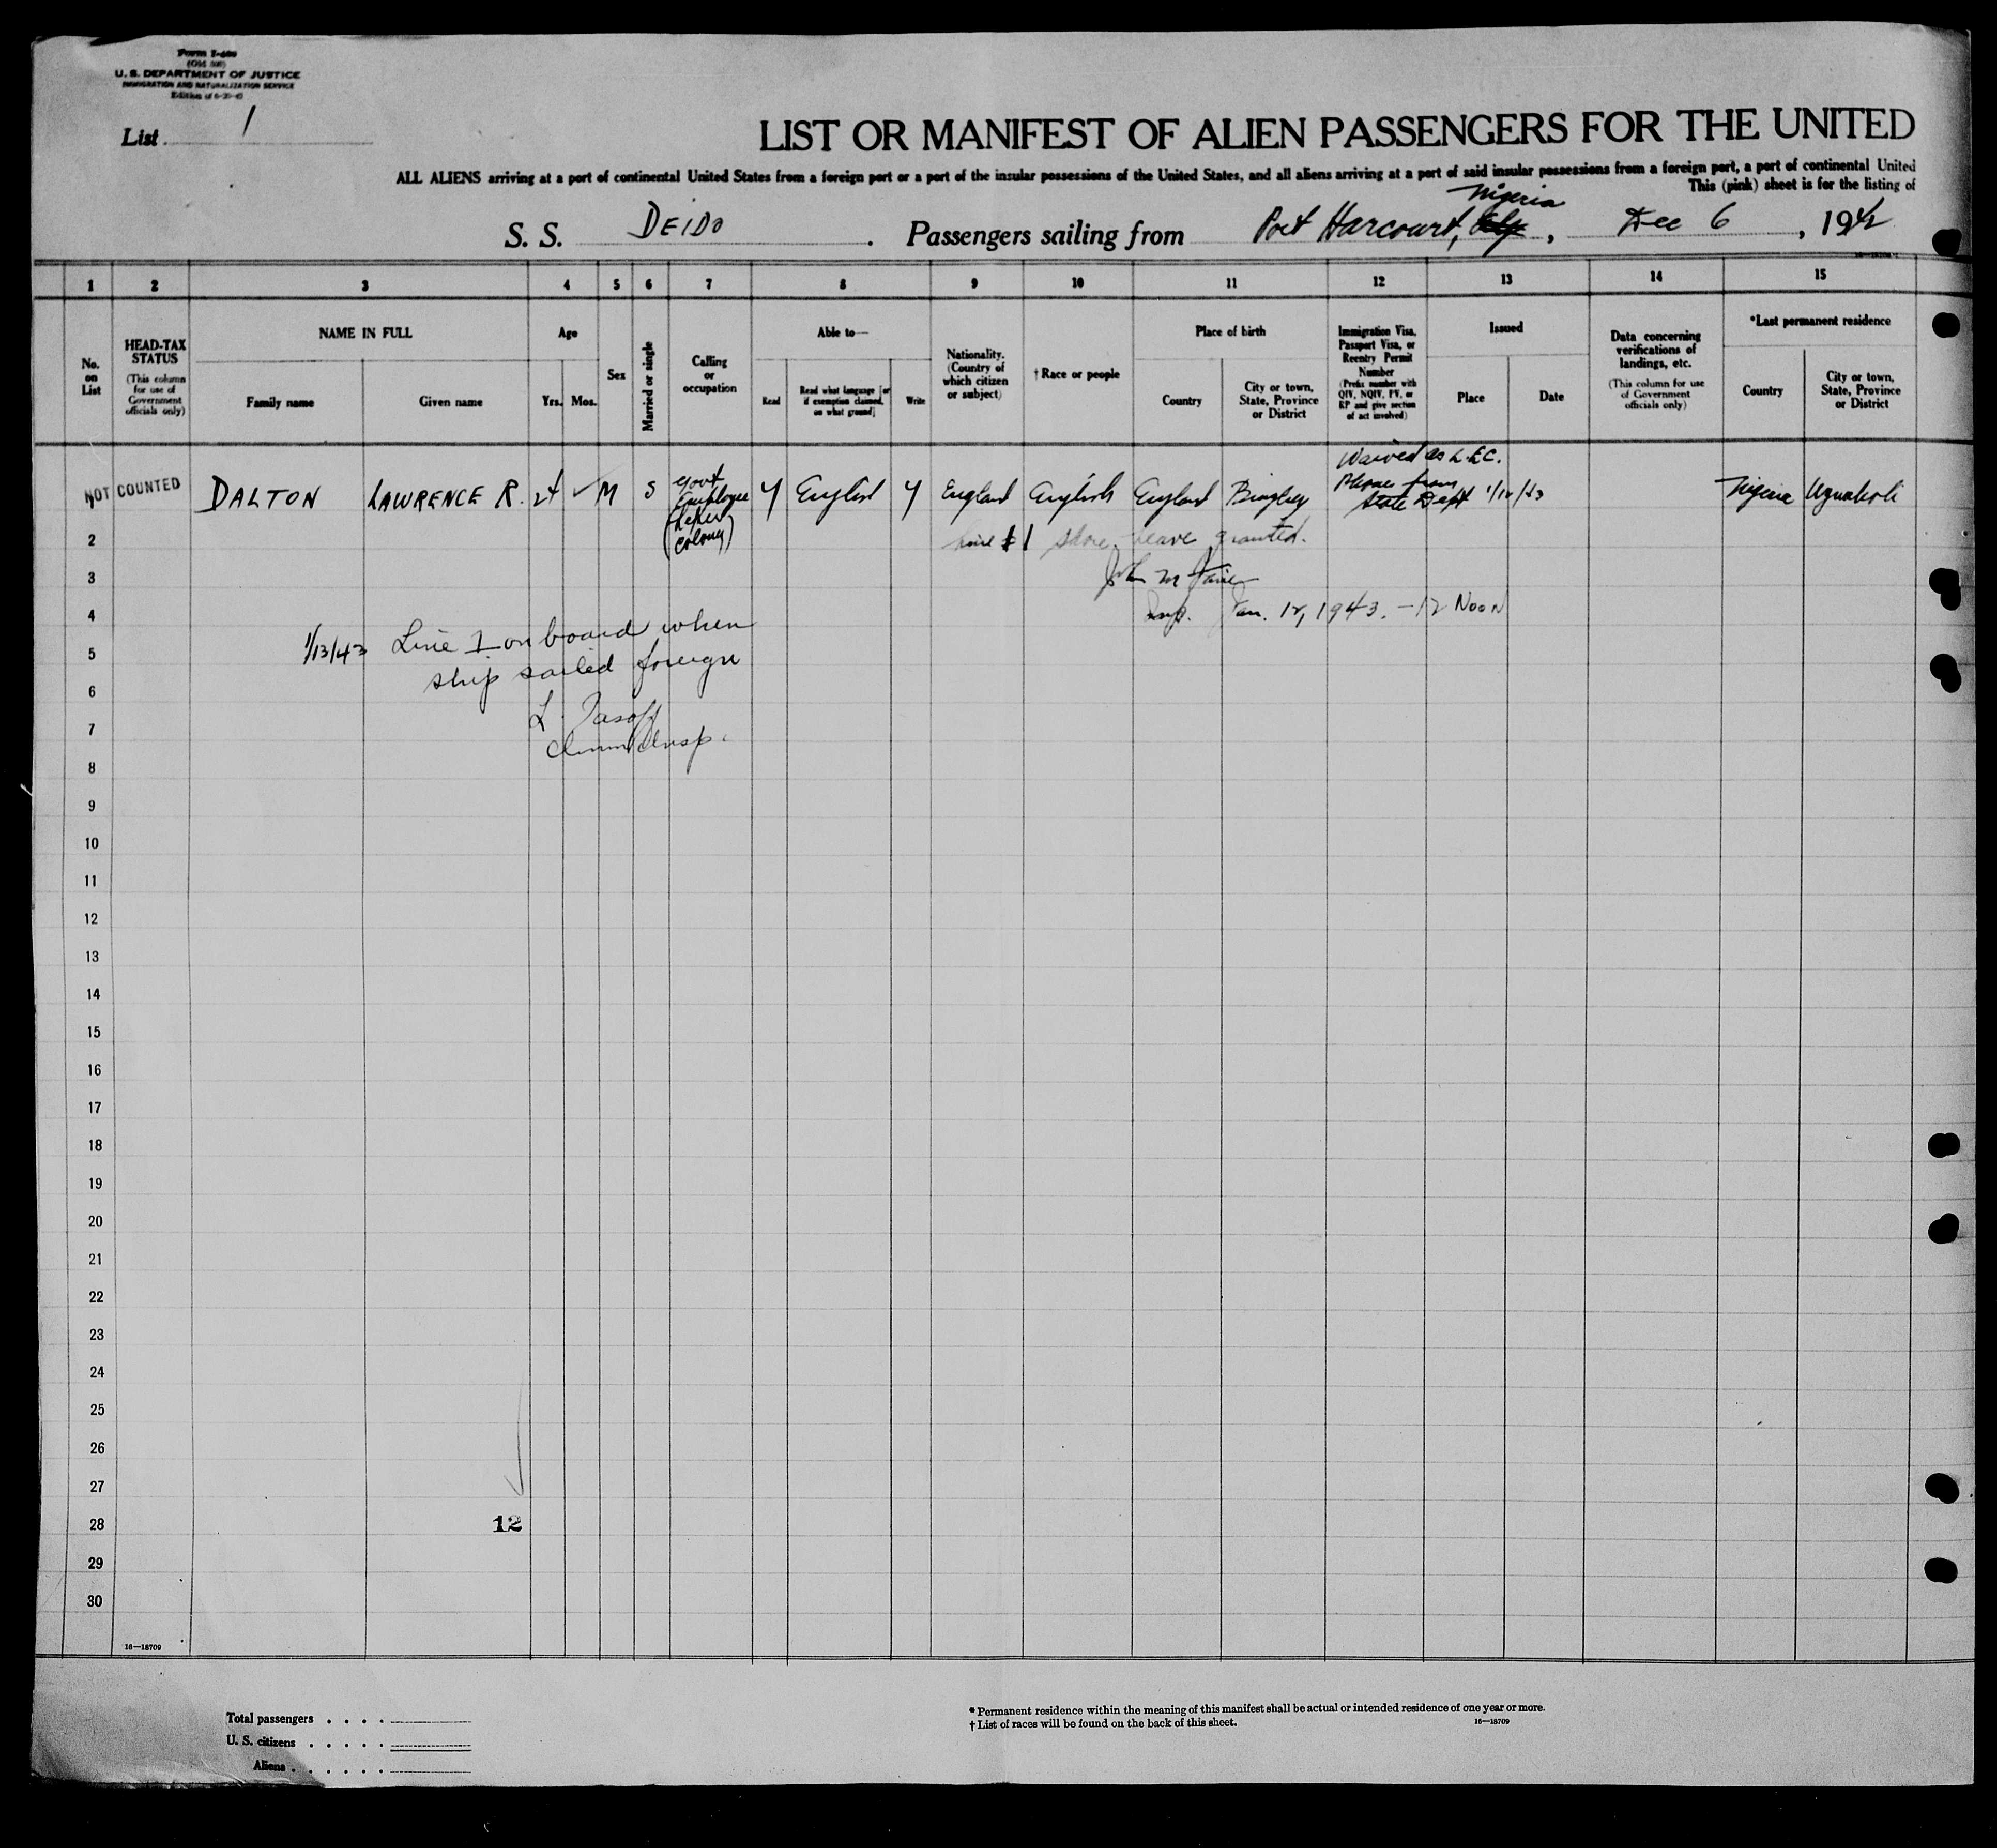 Form I-400
(Old 500)
U. S. DEPARTMENT OF JUSTICE
IMMIGRATION AND NATURALIZATION SERVICE
List 1
LIST OR MANIFEST OF ALIEN PASSENGERS FOR THE UNITED
ALL ALIENS arriving at a port of continental United States from a foreign port or a port of the insular possessions of the United States, and all aliens arriving at a port of said insular possessions from a foreign port, a port of continental United
This (pink) sheet is for the listing of
Nigeria
S. S. DEIDO . Passengers sailing from Port Harcourt, , Dec 6 , 1942
1 2 3 4 5 6 7 8 9 10 11 12 13 14 15
No. on List
HEAD-TAX STATUS
(This column for use of Government officials only)
NAME IN FULL
Family name
Given name
Age
Yrs. Mos.
Sex
Married or single
Calling or occupation
Able to—
Read
Read what language [or if exemption claimed, on what ground]
Write
Nationality. (Country of which citizen or subject)
† Race or people
Place of birth
Country
City or town, State, Province or District
Immigration Visa, Passport Visa, or Reentry Permit Number
(Prefix number with QIV, NQIV, PV, or RP and give section of act involved)
Issued
Place
Date
Data concerning verifications of landings, etc.
(This column for use of Government officials only)
*Last permanent residence
Country
City or town, State, Province or District
Waived as
NOT COUNTED DALTON LAWRENCE R. 24 M S Govt Employee (Leper Colony) Y English Y England English England Bingley Phone from State Dept 1/12/43 Nigeria Uzuakoli
2 Line #1 shore leave granted.
3 John M
4 Insp. Jan. 12, 1943. - 12 Noon
5 1/13/43 Line 1 on board when
6 ship sailed foreign
7 L.
Imm Insp.
8
9
10
11
12
13
14
15
16
17
18
19
20
21
22
23
24
25
26
27
28 12
29
30
16—18709
Total passengers . . . .
U. S. citizens . . . . .
Aliens . . . . . .
* Permanent residence within the meaning of this manifest shall be actual or intended residence of one year or more.
† List of races will be found on the back of this sheet.
16—18709